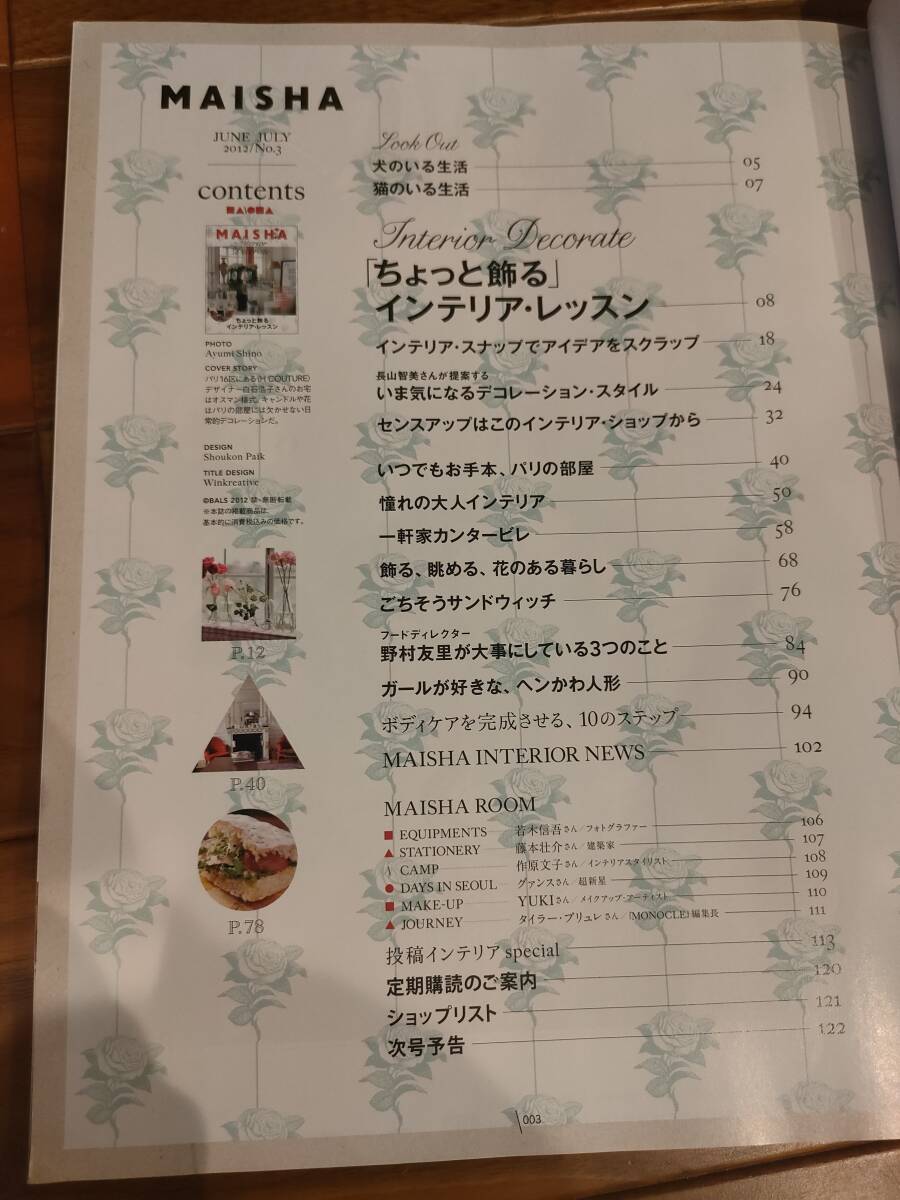 MAISHA
JUNE JULY
2012/No.3
contents
MAISHA
MAISHA
Interior
ちょっと飾る
インテリア・レッスン
PHOTO
Ayumi Shino
COVER STORY
パリ16区にある〈H COUTURE〉
デザイナー白石浩子さんのお宅
はオスマン様式。キャンドルや花
はパリの部屋には欠かせない日
常的デコレーションだ。
DESIGN
Shoukon Paik
TITLE DESIGN
Winkreative
©BALS 2012 禁・無断転載
※本誌の掲載商品は、
基本的に消費税込みの価格です。
P.12
P.40
P.78
Look Out
犬のいる生活 05
猫のいる生活 07
Interior Decorate
「ちょっと飾る」
インテリア・レッスン 08
インテリア・スナップでアイデアをスクラップ 18
長山智美さんが提案する
いま気になるデコレーション・スタイル 24
センスアップはこのインテリア・ショップから 32
いつでもお手本、パリの部屋 40
憧れの大人インテリア 50
一軒家カンタービレ 58
飾る、眺める、花のある暮らし 68
ごちそうサンドウィッチ 76
フードディレクター
野村友里が大事にしている3つのこと 84
ガールが好きな、ヘンかわ人形 90
ボディケアを完成させる、10のステップ 94
MAISHA INTERIOR NEWS 102
MAISHA ROOM
EQUIPMENTS 若木信吾さん/フォトグラファー 106
STATIONERY 藤本壮介さん/建築家 107
CAMP 作原文子さん/インテリアスタイリスト 108
DAYS IN SEOUL グァンスさん/超新星 109
MAKE-UP YUKIさん/メイクアップ・アーティスト 110
JOURNEY タイラー・ブリュレさん/『MONOCLE』編集長 111
投稿インテリア special 113
定期購読のご案内 120
ショップリスト 121
次号予告 122
003